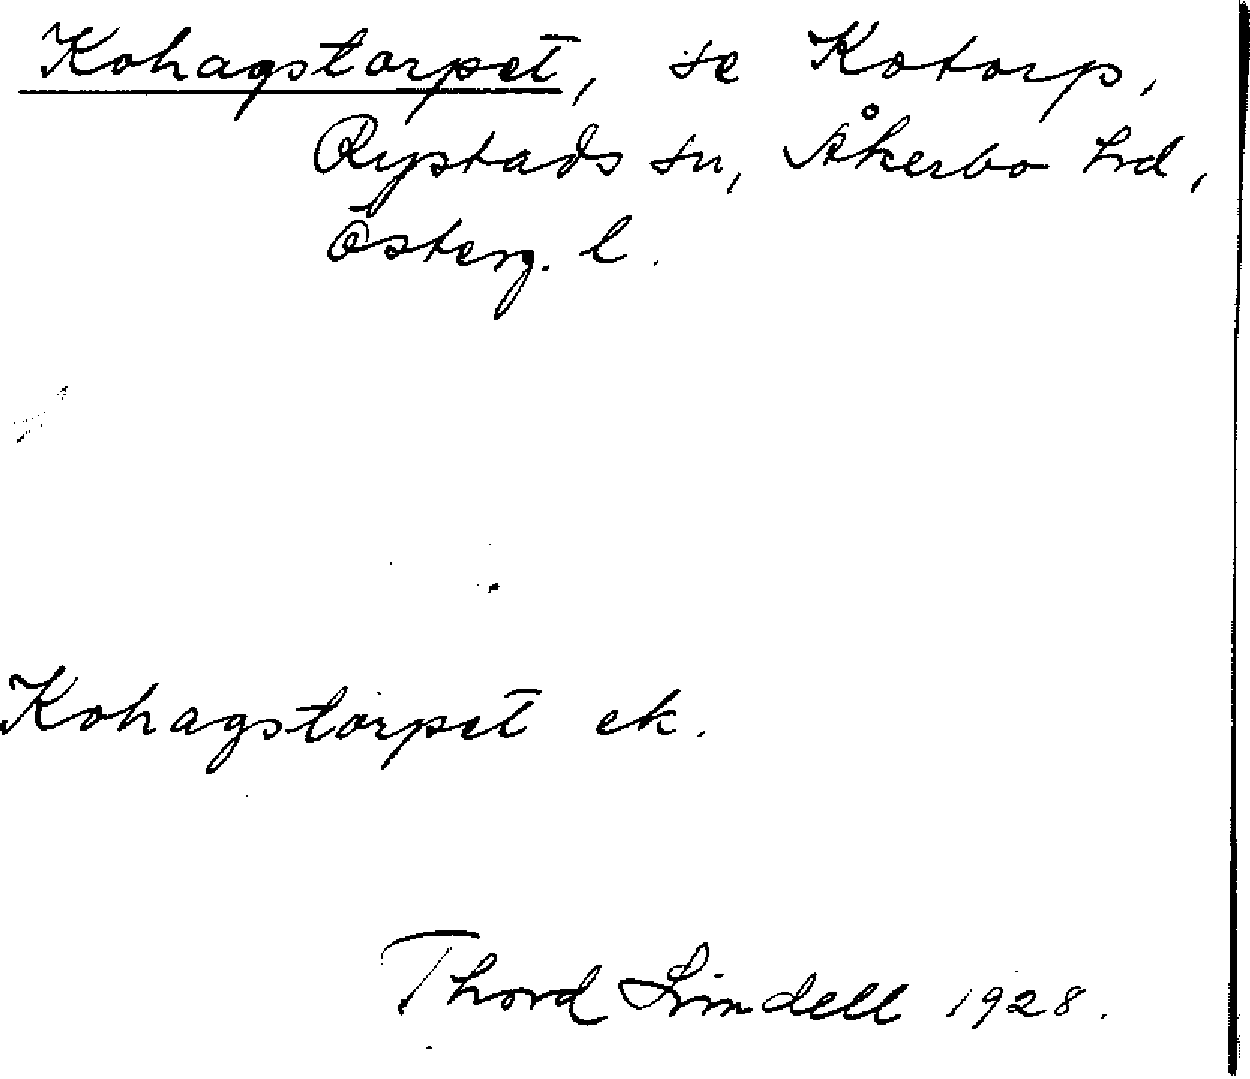 Kohagstorpet, se Kotorp,
Rystads sn, Åkerbo hd,
Österg. l.
Kohagstorpet ek.
Thord Lindell 1928.